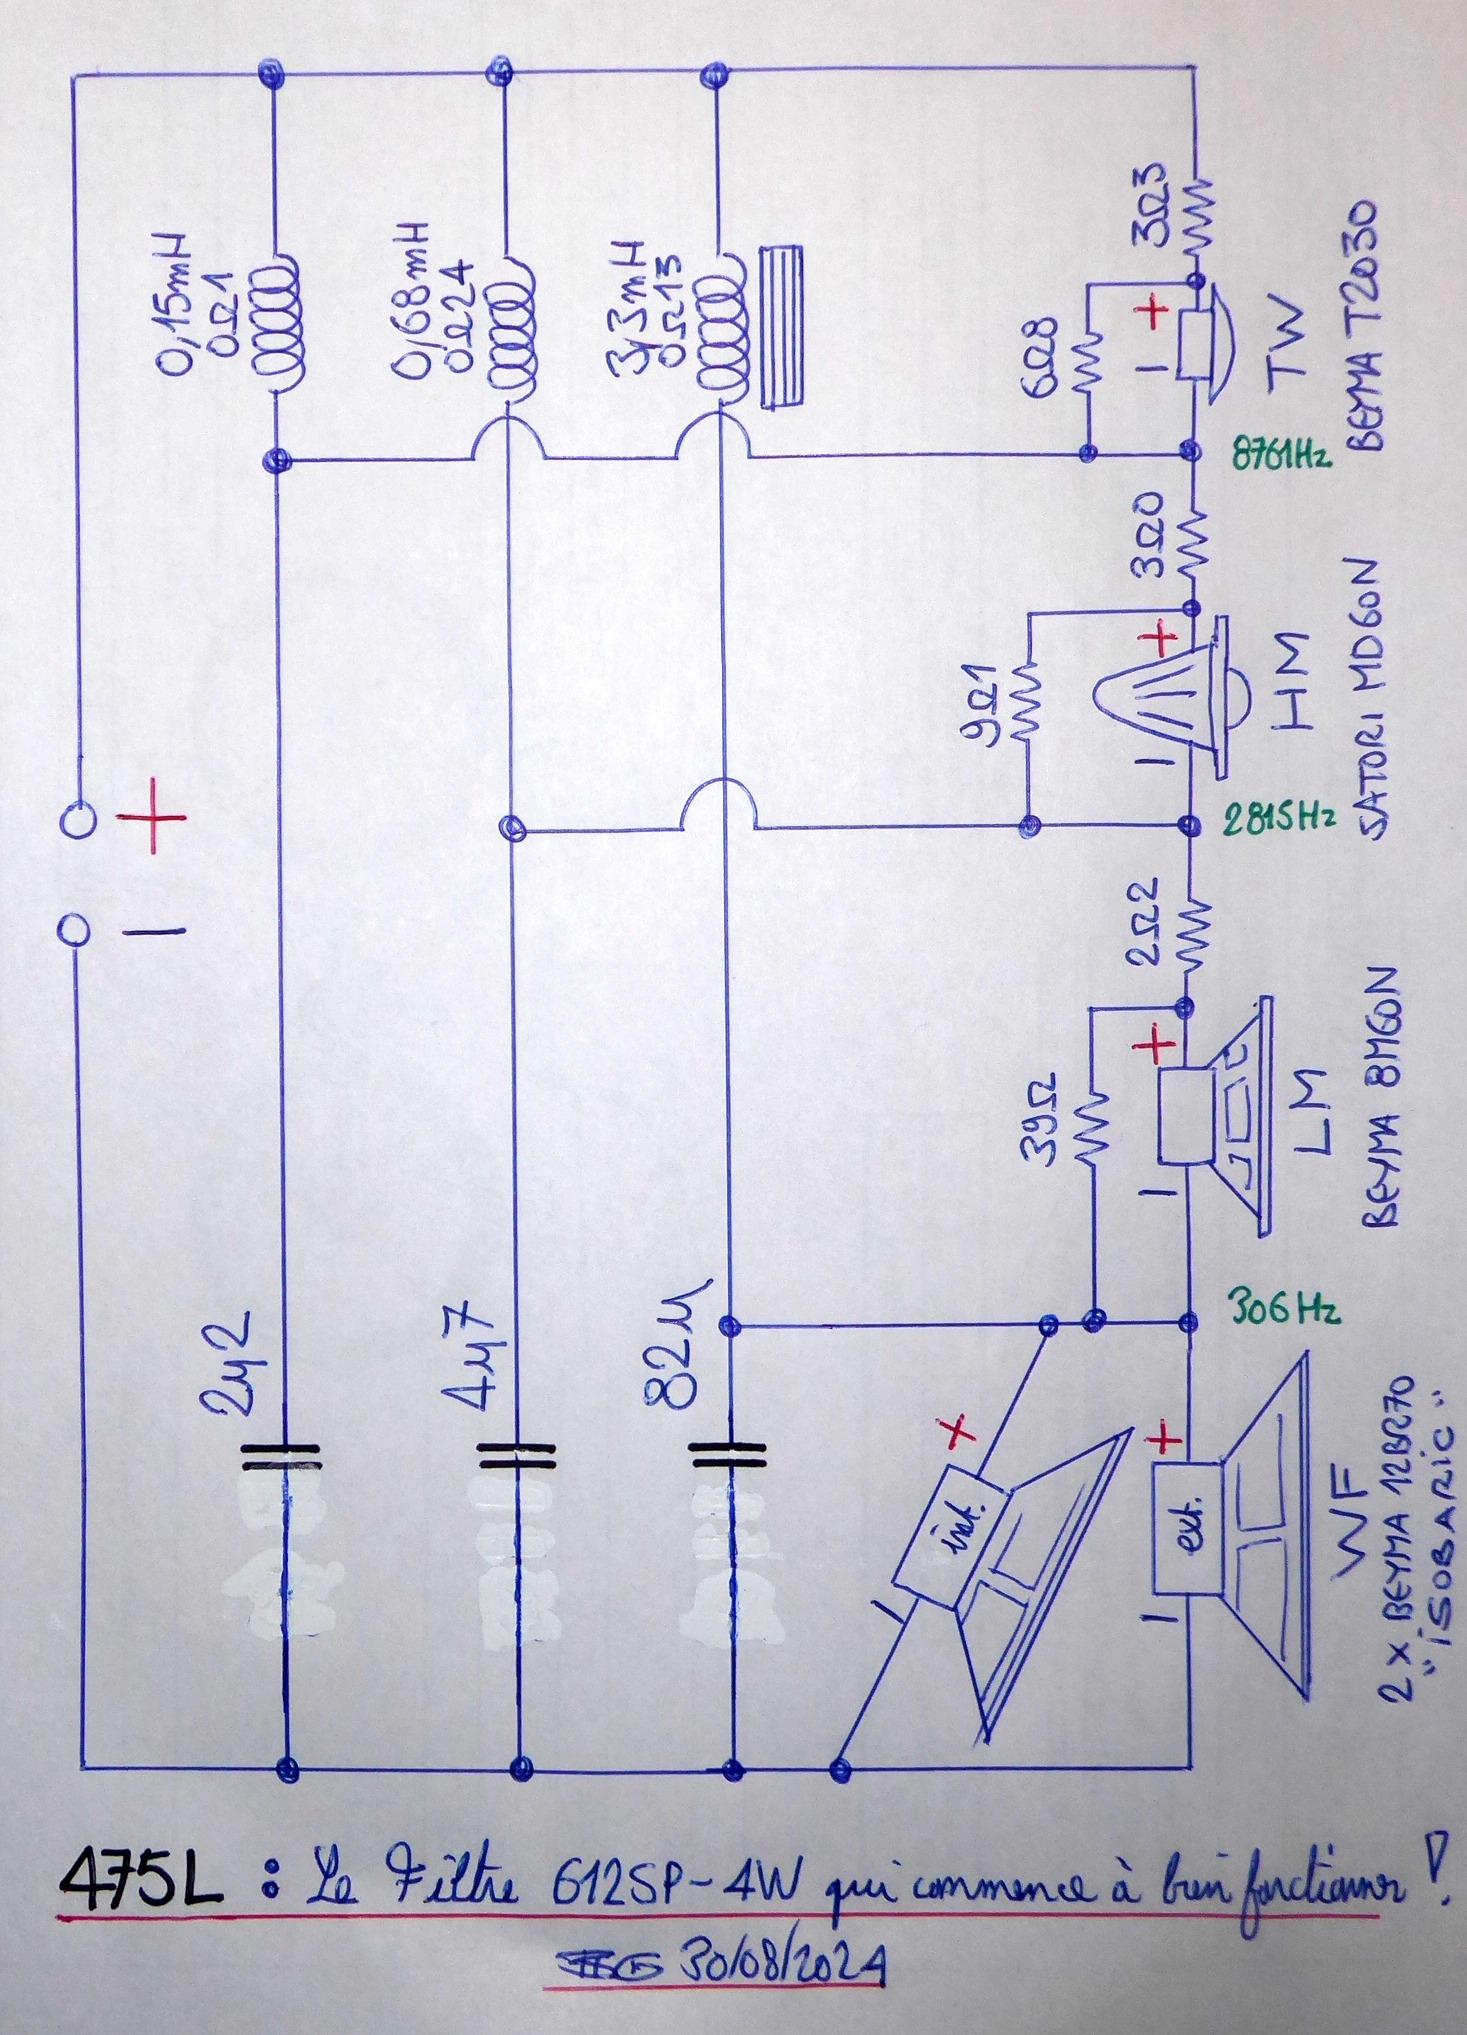 0,15mH
0Ω1
0,68mH
0Ω24
3,3mH
0Ω13
3Ω3
6Ω8
+
TW
BEYMA T2030
8761Hz
3Ω0
9Ω1
+
HM
SATORI MD60N
2815Hz
+
−
2Ω2
39Ω
+
LM
BEYMA 8M60N
306Hz
2µ2
4µ7
82µ
+
int.
+
ext.
WF
2 x BEYMA 12BR70
"iSOBARiC"
475L : Le Filtre 612SP-4W qui commence à bien fonctionner !
30/08/2024